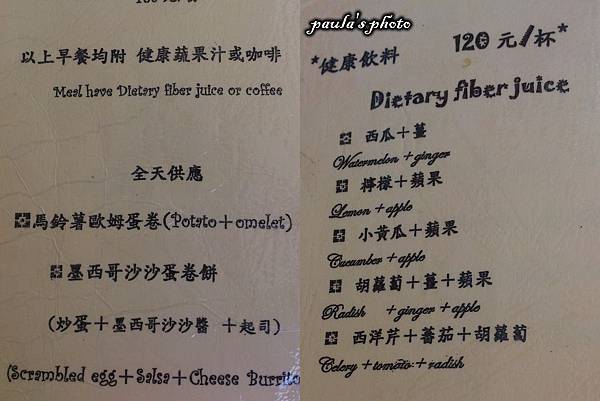 paula's photo
以上早餐均附 健康蔬果汁或咖啡
Meal have Dietary fiber juice or coffee
全天供應
馬鈴薯歐姆蛋卷(Potato+omelet)
墨西哥沙沙蛋卷餅
(炒蛋+墨西哥沙沙醬 +起司)
(Scrambled egg+Salsa+Cheese Burrito
*健康飲料 120元/杯*
Dietary fiber juice
西瓜+薑
Watermelon+ginger
檸檬+蘋果
Lemon+apple
小黃瓜+蘋果
Cucumber+apple
胡蘿蔔+薑+蘋果
Radish +ginger+apple
西洋芹+蕃茄+胡蘿蔔
Celery+tomato+radish